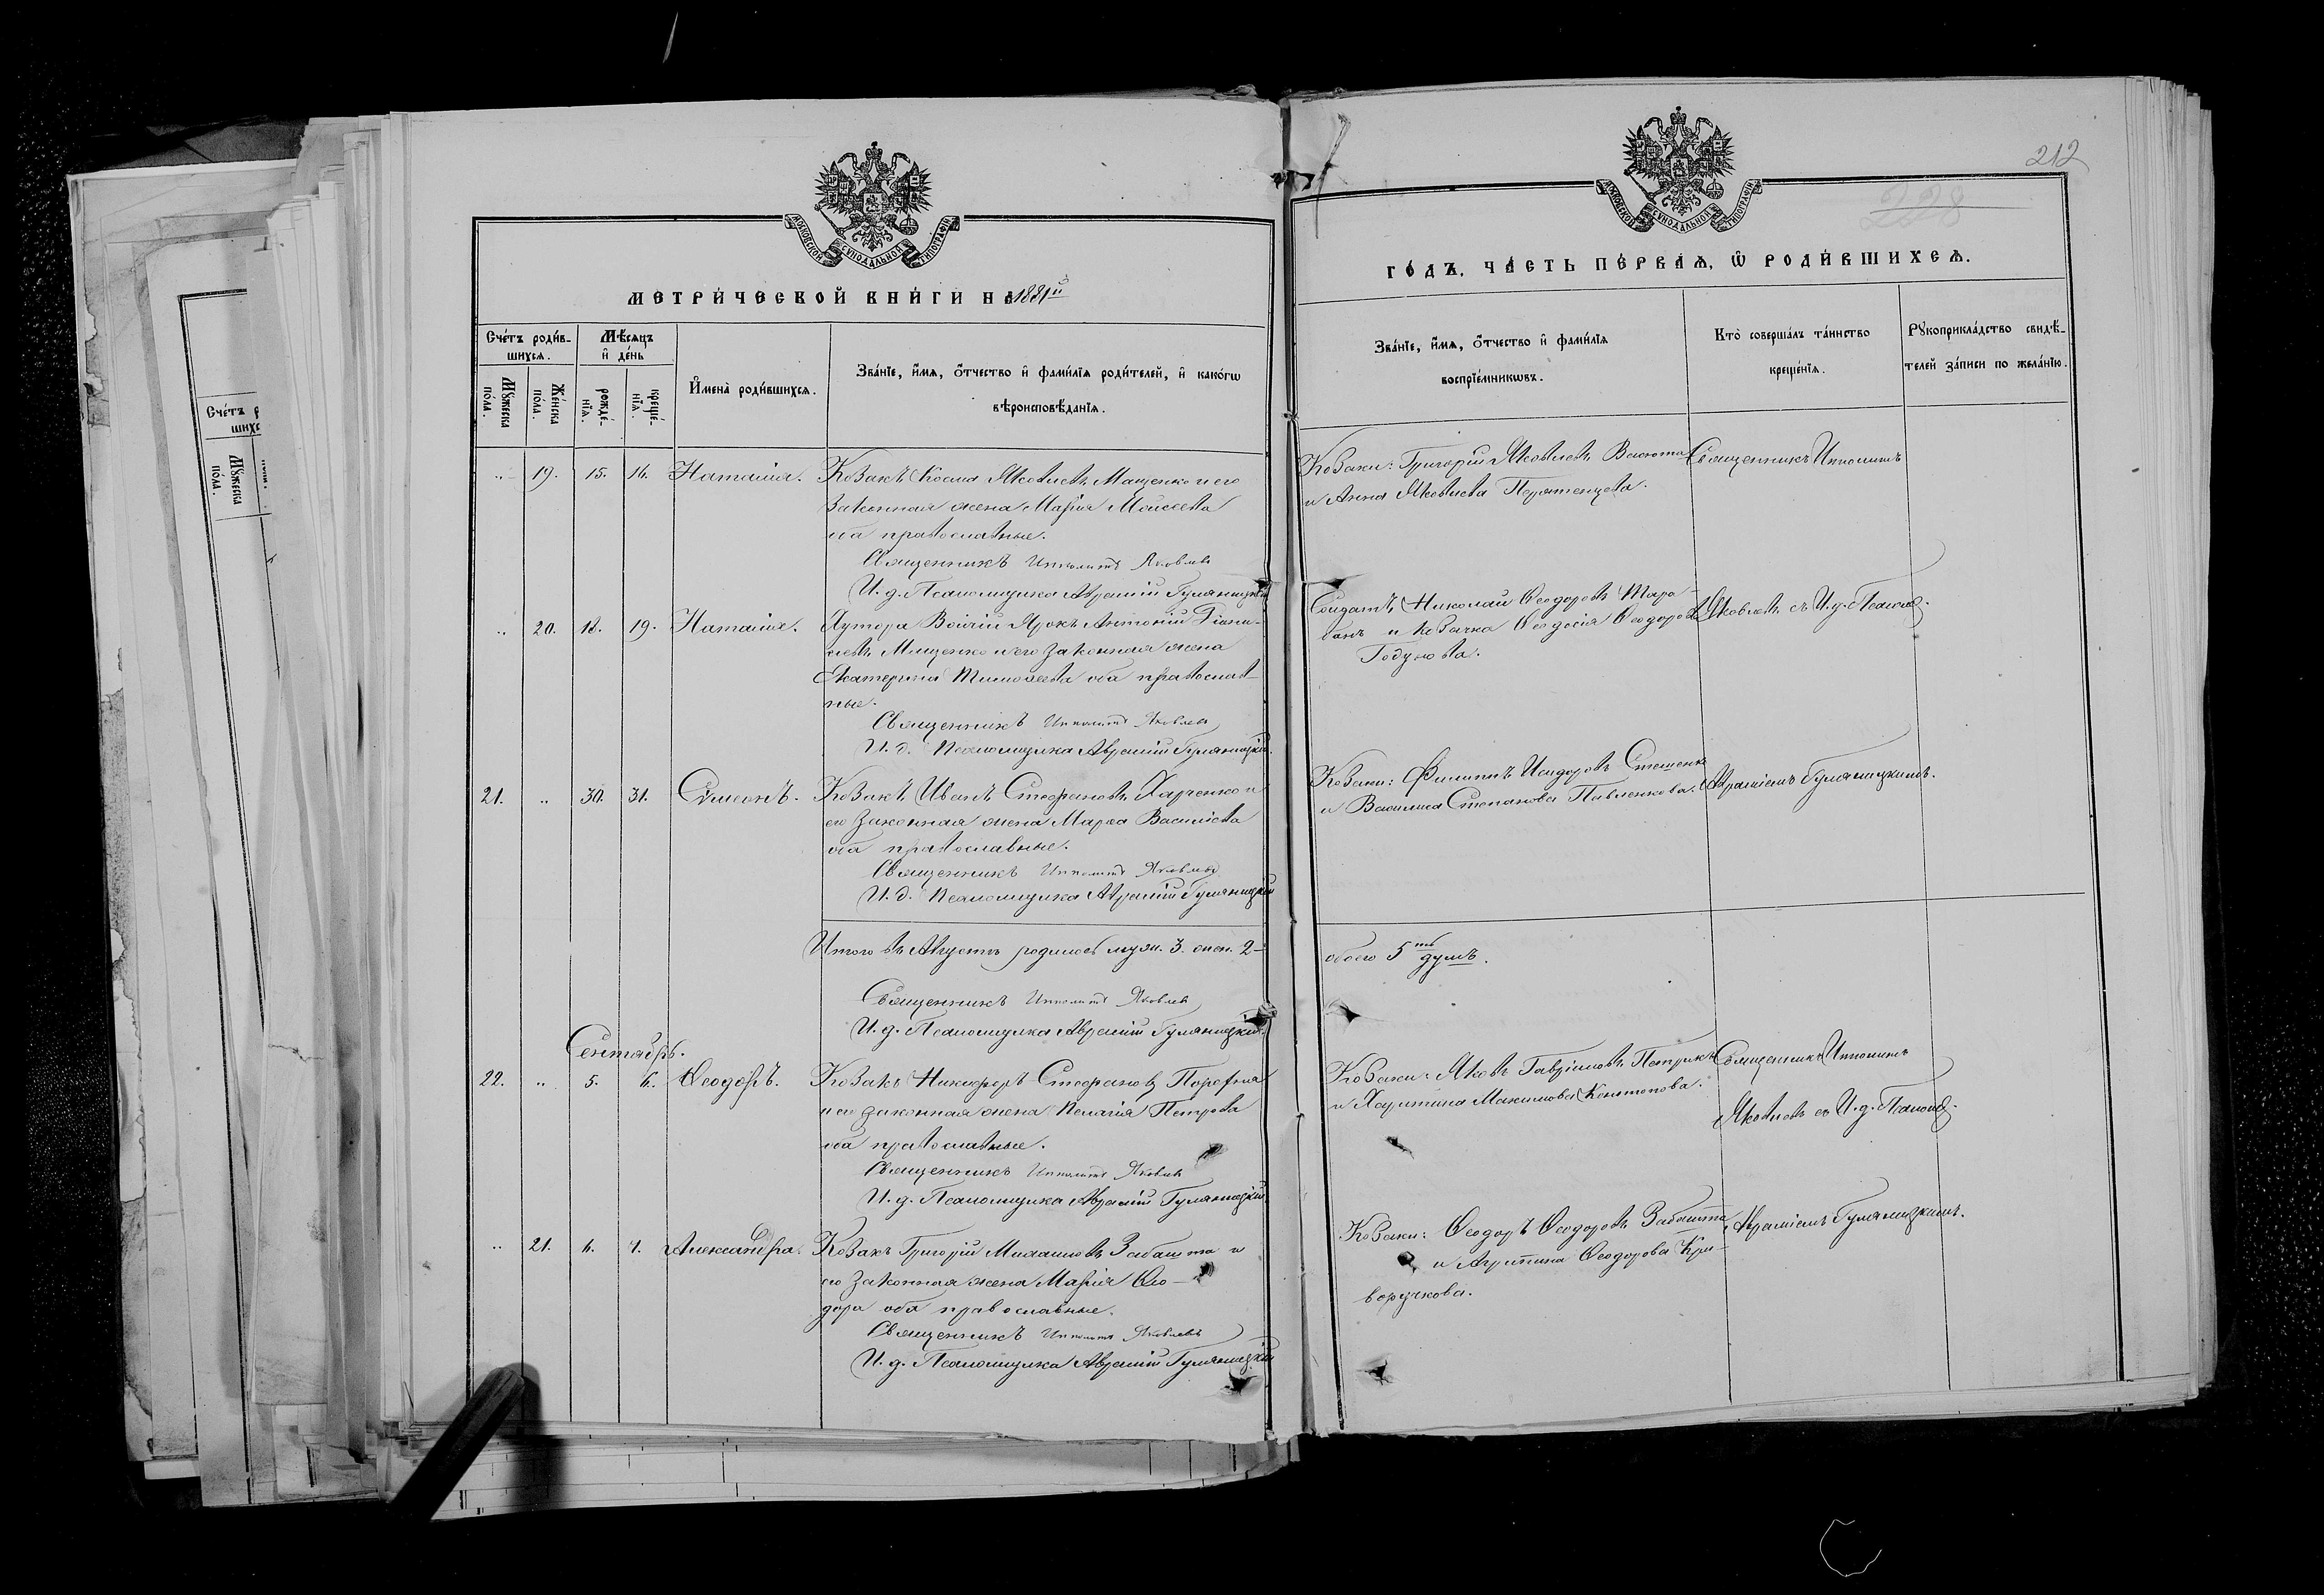 212
228
МОСКОВСКОЙ СѴНОДАЛЬНОЙ ТИПОГРАФІИ
МОСКОВСКОЙ СѴНОДАЛЬНОЙ ТИПОГРАФІИ
МЕТРИ́ЧЕСКОЙ КНИ́ГИ НА 1881й
ГО́ДЪ, ЧА́СТЬ ПЕ́РВАѦ, Ѡ҆ РОДИ́ВШИХСѦ.
Сче́тъ роди́в-
шихсѧ.
Мѣ́сѧцъ
и҆ де́нь
Мꙋ́жеска
по́ла.
Же́нска
по́ла.
рожде́-
нїѧ.
креще́-
нїѧ.
И҆мена̀ роди́вшихсѧ.
Зва́нїе, и҆́мѧ, ѻ҆́тчество и҆ фами́лїѧ роди́телей, и҆ како́гѡ
вѣроисповѣ́данїѧ.
Зва́нїе, и҆́мѧ, ѻ҆́тчество и҆ фами́лїѧ
воспрїе́мникѡвъ.
Кто̀ соверша́лъ та́инство
креще́нїѧ.
Рꙋкоприкла́дство свидѣ́-
телей за́писи по жела́нїю.
Сче́тъ р
шихс
Мꙋ́жеска
по́ла.
„ 19. 15. 16. Наталія. Козакъ Косма Яковлевъ Мащенко и его
законная жена Марія Моисеева
оба православные.
Священникъ Ипполитъ Яковлевъ
И. д. Псаломщика Авраамій Гуляницкій
Козаки: Григорій Яковлевъ Васюта
и Анна Яковлева
Священникъ Ипполитъ
„ 20. 18. 19. Наталія. Антоній
Мищенко и его законная жена
Екатерина Тимоѳеева оба православ-
ные.
Священникъ Ипполитъ Яковлевъ
И. д. Псаломщика Авраамій Гуляницкій.
Солдатъ Николай Ѳеодоровъ Тара-
банъ и козачка Ѳеодосія Ѳеодорова
Годунова.
Яковлевъ съ И. д. Псалом.
21. „ 30. 31. Сѵмеонъ. Козакъ Иванъ Стефановъ Харченко и
его законная жена Марѳа Василіева
оба православные.
Священникъ Ипполитъ Яковлевъ
И. д. Псаломщика Авраамій Гуляницкій
Козаки: Филиппъ Исидоровъ Стешенк
и Василиса Степанова Павленкова.
Авраміемъ Гуляницкимъ.
Итого въ Августѣ родилось муж. 3. жен. 2-
обоего 5ть душъ.
Священникъ Ипполитъ Яковлевъ
И. д. Псаломщика Авраамій Гуляницкій.
Сентябрь.
22. „ 5. 6. Ѳеодоръ. Козакъ Никифоръ Стефановъ
и его законная жена Пелагія Петрова
оба православные.
Священникъ Ипполитъ Яковлевъ
И. д. Псаломщика Авраамій Гуляницкій
Козаки: Яковъ Гавріиловъ Петрикъ
и Харитина Максимова Конотопова.
Священникъ Ипполитъ
Яковлевъ съ И. д. Псалом.
„ 21. 6. 7. Александра. Козакъ Григорій Михаиловъ Забашта и
его законная жена Марія Ѳео-
дора оба православные.
Священникъ Ипполитъ Яковлевъ
И. д. Псаломщика Авраамій Гуляницкій
Козаки: Ѳеодоръ Ѳеодоровъ Забашта
и Агрипина Ѳеодорова Кри-
воручкова.
Авраміемъ Гуляницкимъ.